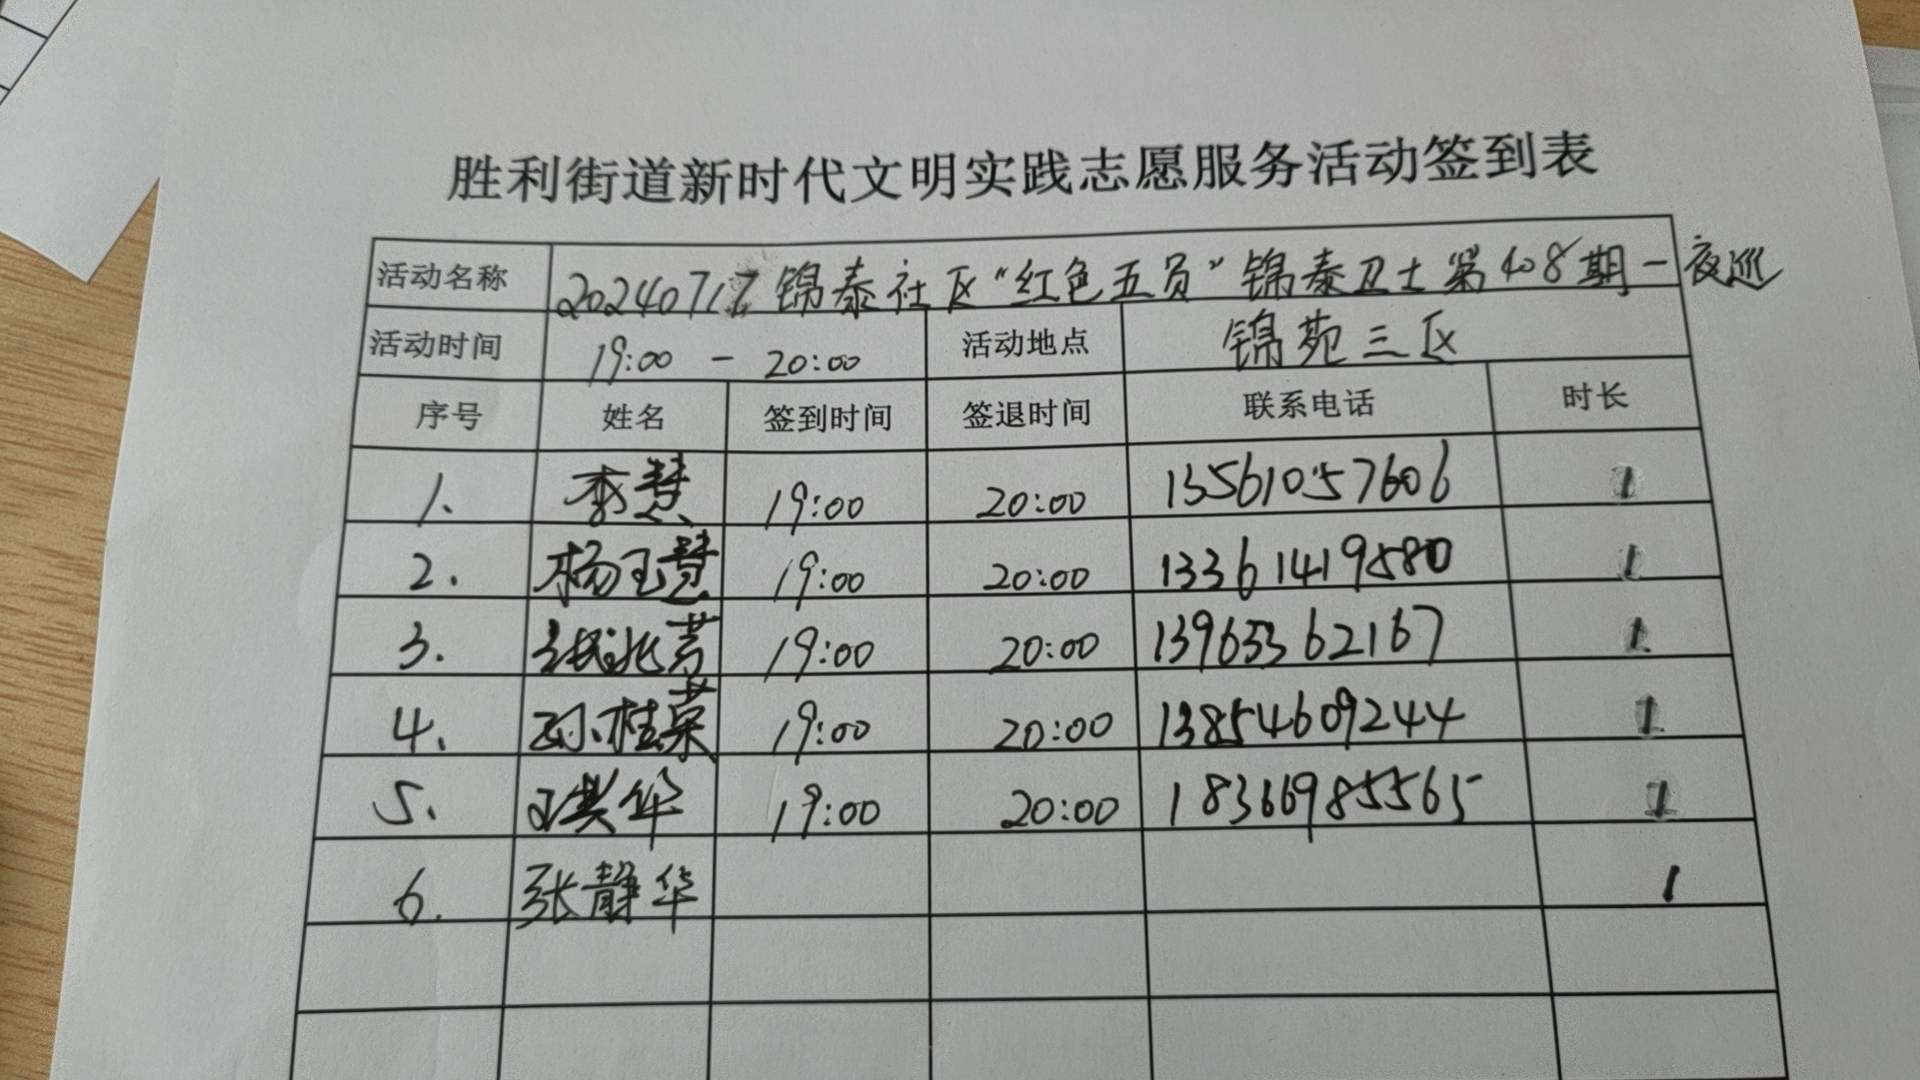 胜利街道新时代文明实践志愿服务活动签到表
活动名称 20240717 锦泰社区“红色五员”锦泰卫士第408期-夜巡
活动时间 19:00 - 20:00 活动地点 锦苑三区
序号 姓名 签到时间 签退时间 联系电话 时长
1. 李慧 19:00 20:00 13561057606 1
2. 杨玉慧 19:00 20:00 13361419580 1
3. 张兆芳 19:00 20:00 13963362167 1
4. 孙桂荣 19:00 20:00 13854609244 1
5. 王其华 19:00 20:00 18366985565 1
6. 张静华 1